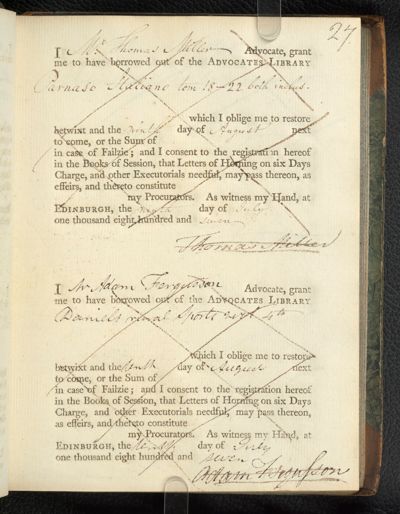 27
I Mr Thomas Miller Advocate, grant
me to have borrowed out of the ADVOCATES LIBRARY
Parnaso Italiano tom 18–22 both inclus.
which I oblige me to restore
betwixt and the ninth day of August next
to come, or the Sum of
in case of Failzie; and I consent to the registration hereof
in the Books of Session, that Letters of Horning on six Days
Charge, and other Executorials needful, may pass thereon, as
effeirs, and thereto constitute
my Procurators. As witness my Hand, at
EDINBURGH, the ninth day of July
one thousand eight hundred and seven
Thomas Miller
I Mr Adam Fergusson Advocate, grant
me to have borrowed out of the ADVOCATES LIBRARY
Daniel's rural Sports 4to
which I oblige me to restore
betwixt and the tenth day of August next
to come, or the Sum of
in case of Failzie; and I consent to the registration hereof
in the Books of Session, that Letters of Horning on six Days
Charge, and other Executorials needful, may pass thereon,
as effeirs, and thereto constitute
my Procurators. As witness my Hand, at
EDINBURGH, the tenth day of July
one thousand eight hundred and seven
Adam Fergusson